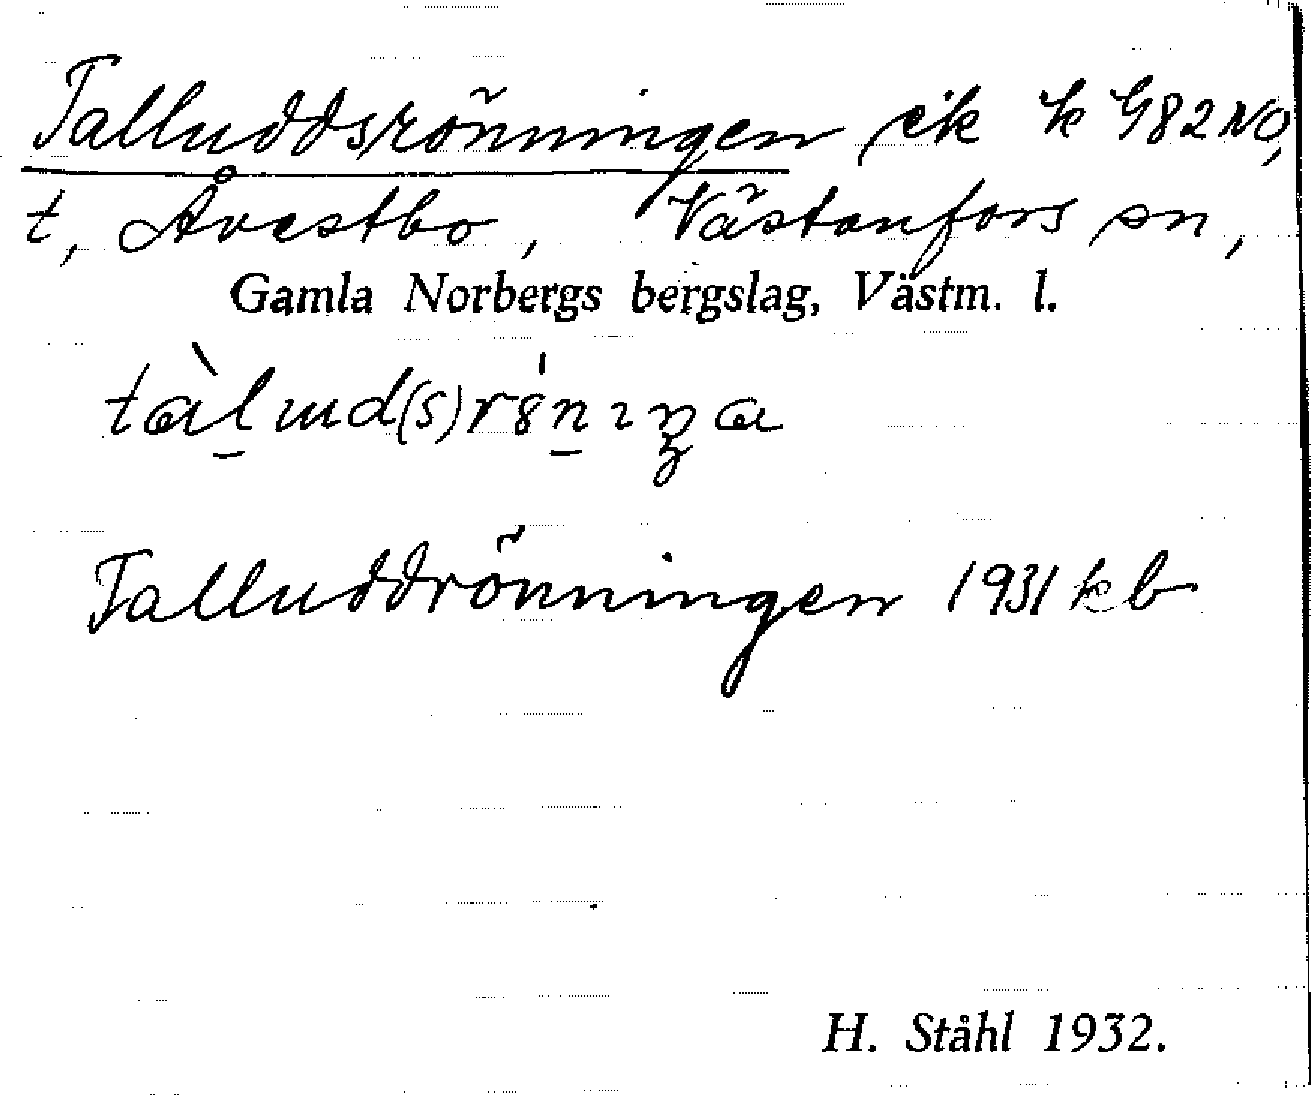 Talluddsrönningen, eik k G82NO,
t, Åvestbo, Västanfors sn,
Gamla Norbergs bergslag, Västm. l.
Talluddrönningen 1931 kb
H. Ståhl 1932.